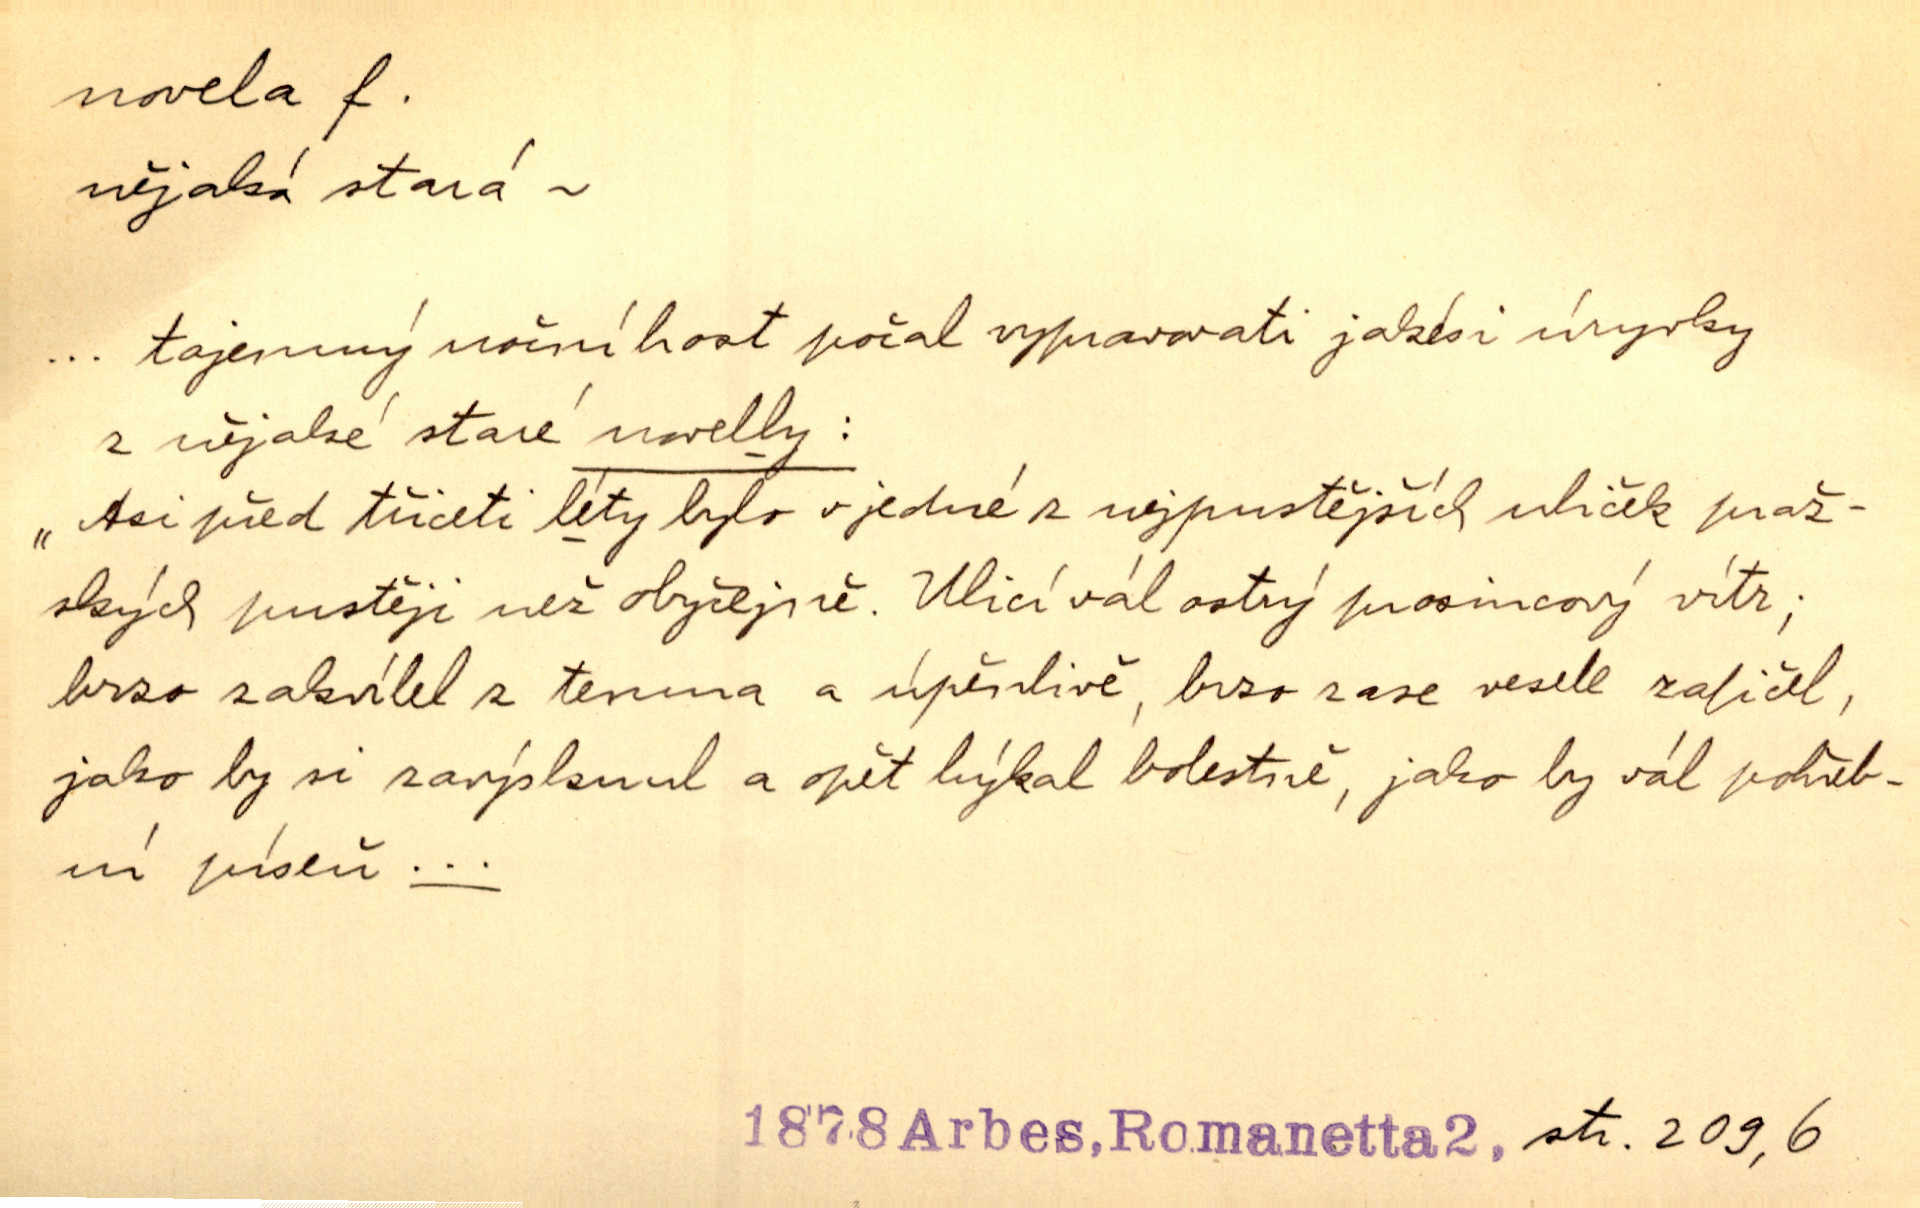 novela f.
nějaká stará ~
... tajemný noční host počal vypravovati jakési úryvky
z nějaké staré novelly :
„Asi před třiceti léty bylo v jedné z nejpustějších uliček praž-
ských pustěji než obyčejně. Ulicí vál ostrý prosincový vítr;
brzo zakvílel z temna a úpěnlivě, brzo zase vesele zafičel,
jako by si zavýsknul a opět hýkal bolestně, jako by vál pohřeb-
ní píseň ...
1878 Arbes, Romanetta 2, str. 209,6